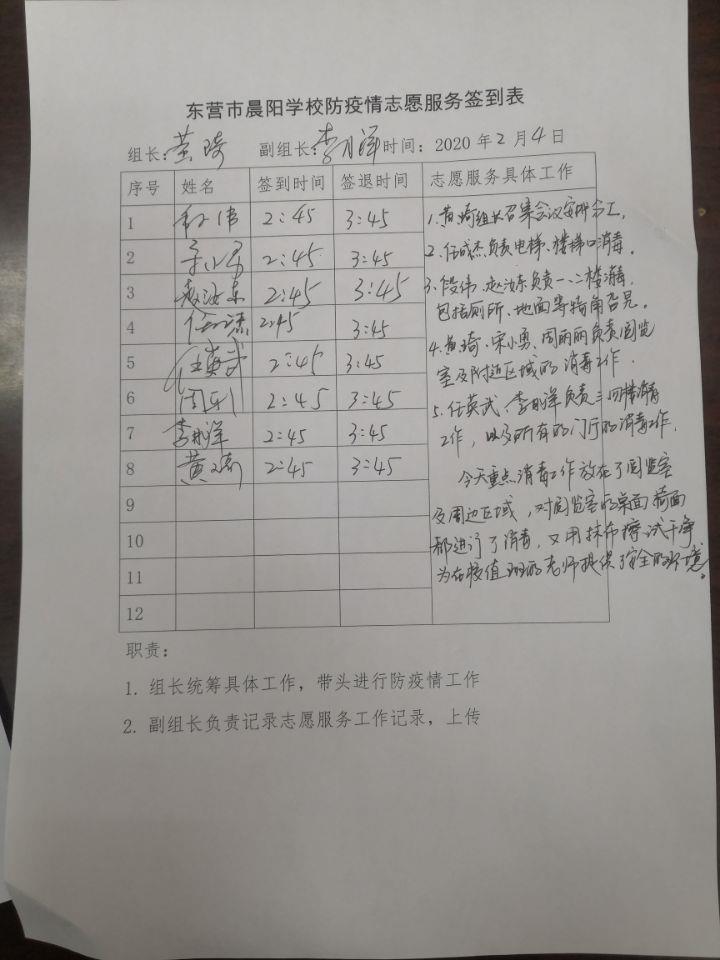 东营市晨阳学校防疫情志愿服务签到表
组长: 黄琦 副组长: 李月洋 时间: 2020 年 2 月 4 日
序号 姓名 签到时间 签退时间 志愿服务具体工作
1 2:45 3:45
2 2:45 3:45
3 赵汝东 2:45 3:45
4 2:45 3:45
5 任英武 2:45 3:45
6 2:45 3:45
7 2:45 3:45
8 黄琦 2:45 3:45
9
10
11
12
1. 黄琦组长召集会议安排分工。
2. 任成杰负责电梯、楼梯口消毒。
3. 段伟、赵汝东负责一、二楼消毒,
包括厕所、地面等犄角旮旯。
4. 黄琦、宋小勇、周丽丽负责阅览
室及附近区域的消毒工作.
5. 任英武、李月洋负责三四楼消毒
工作, 以及所有的门厅的消毒工作.
今天重点消毒工作放在了阅览室
及周边区域, 对阅览室的桌面椅面
都进行了消毒, 又用抹布擦试干净
为在校值班的老师提供了安全的环境。
职责:
1. 组长统筹具体工作, 带头进行防疫情工作
2. 副组长负责记录志愿服务工作记录, 上传